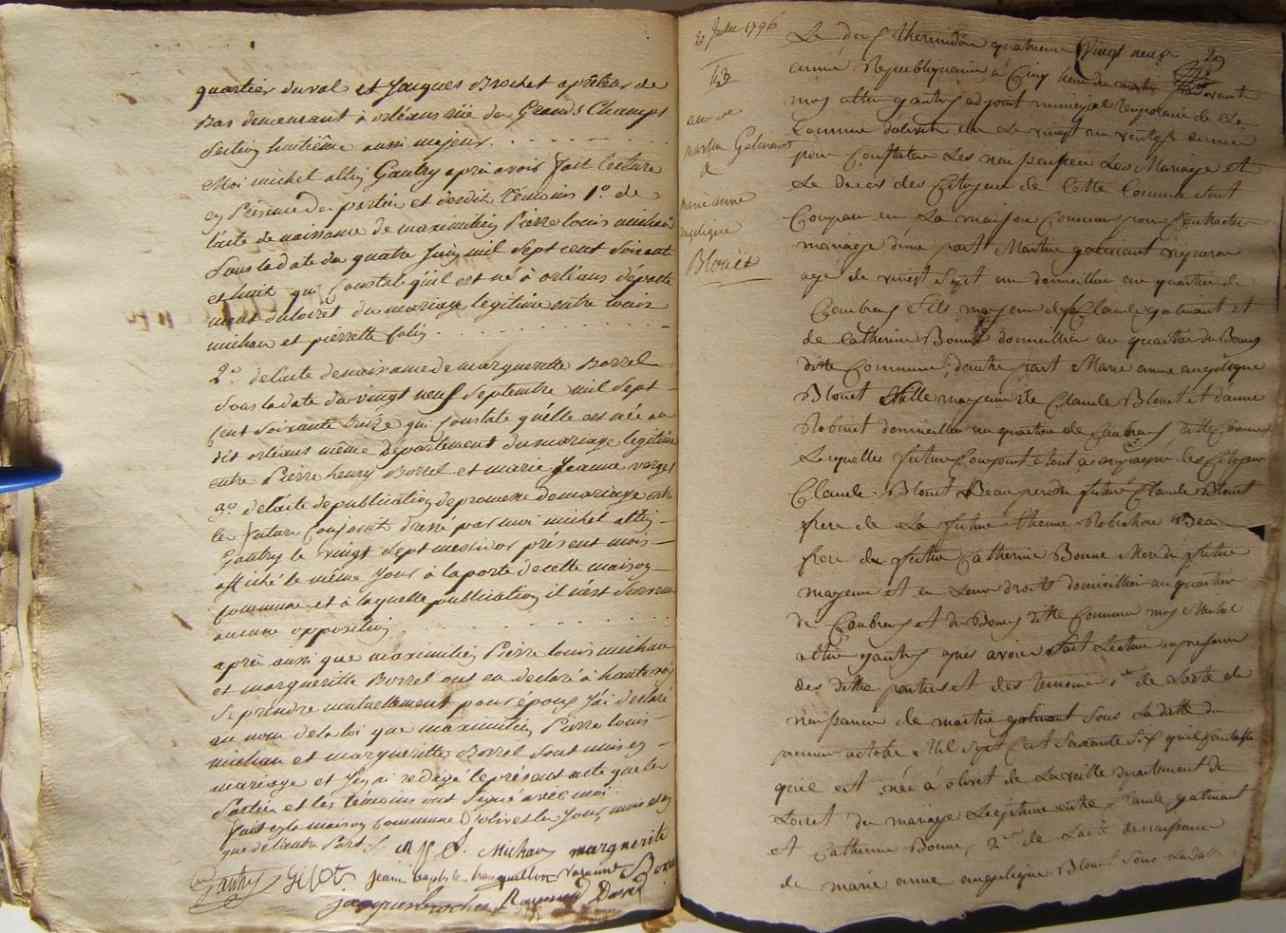 quartier du val et Jacques Brochet aprêteur de
Bas demeurant à orléans rüe des Grands Champs
section huitième aussi majeur.
Moi michel altin Gautry après avoir fait lecture
en Présence des parties et desdits témoins 1.° de
l'acte de naissance de maximilien Pierre louis michau
sous la date du quatre Juin mil sept cent soixante
et huit qui constate qu'il est né à orléans départe
ment du loiret du mariage legitime entre louis
michau et pierrette
2.° de l'acte de naissance de margueritte Borrel
sous la date du vingt neuf septembre mil sept
cent soixante treize qui constate qu'elle est née au
dit orléans même département du mariage legitime
entre Pierre henry Borrel et marie Jeanne
3.° de l'acte de publication de promesse de mariage entre
les futurs conjoints dressé par moi michel altin
Gautry le vingt sept messidor présent mois
affiché le même Jour à la porte de cette maison
commune et à laquelle publication il n'est survenu
aucune opposition
après aussi que maximilien Pierre louis michau
et margueritte Borrel ont eu declaré à haute voix
se prendre mutuellement pour époux J'ai declaré
au nom de la loi que maximilien Pierre louis
michau et marguerite Borrel sont unis en
mariage et J'en ai redigé le présent acte que les
Parties et les témoins ont signé avec moi
fait en la maison commune d'olivet les Jour, mois et an
que d'autre Part. Michau marguerite
Gautry Gilet Jean Borrel
jacques brochet Raymond
Juillet 1796
Le dix thermidor quatrieme Vingt neuf 29
année Republiquaine à Cinq heure
moy altin gautry adjoint municipal
Commune dolivet
pour Constater Les naissances Les Mariage et
Le deces des Citoyens de Cette Commune sont
Comparu en La maison Commune pour Contracter
mariage d'une part Martin galmant vigneron
martin Galmant
&
agé de vingt Sept an domeillier au quartier de
marie anne
angelique
Blouet
Coubray fils mageur de Claude galmant et
de Catherine Bonne domeillier au quartier du Bourg
ditte Commune, dautre part Marie anne angelique
Blouet fille mageure de Claude Blouet et danne
Robinet domeillier au quartier de Coubray ditte Commune
Lesquelles futur Conjoint etant accompagner les Citoyen
Claude Blouet Beau pere du futur Claude Blouet
frere de La future Etienne Robichon Beau
frere du futur Catherine Bonne Mere du futur
mageur et en Leur droits domeillier au quartier
de Coubray et du Bourg ditte Commune moy Michel
altin gautry apres avoir fait Lecture en presence
des dittes parties et des temoins 1.° de Lacte de
naissance de martin galmant sous La datte du
premier octobre Mil Sept Cent Soixante Six quil Constate
quil est née à olivet de Laveille departement du
Loiret du mariage Legitime entre Claude galmant
et Catherine Bonne, 2.° de Lacte de naissance
de marie anne angelique Blouet sous La datte